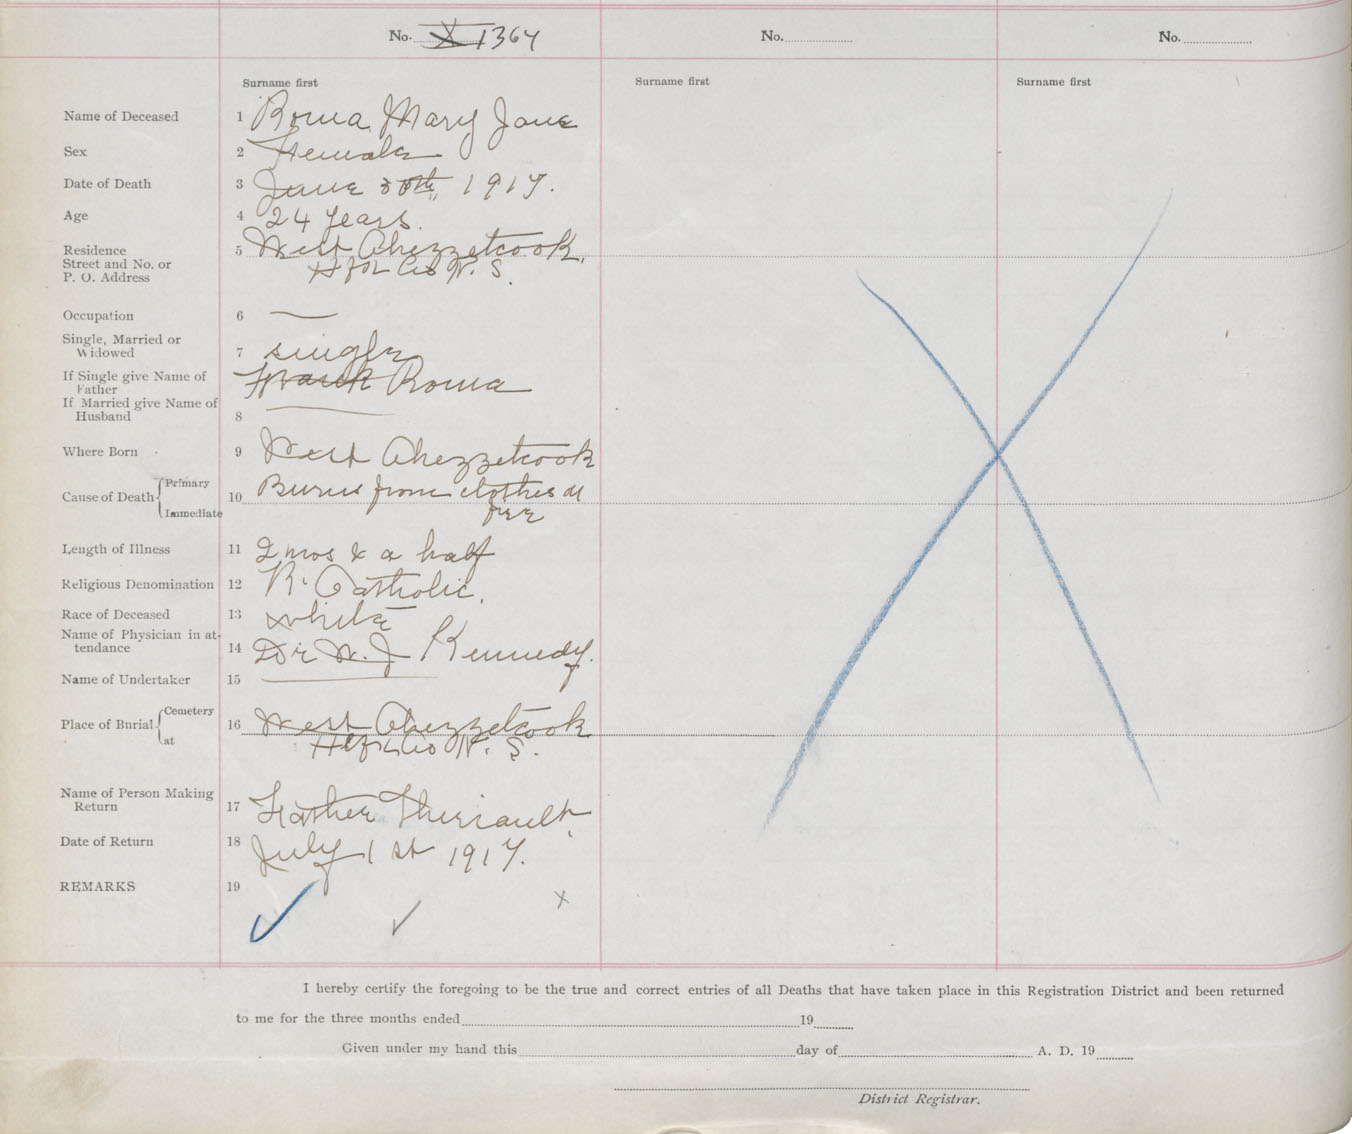 No. X 1364
No.
No.
Surname first
Surname first
Surname first
Name of Deceased 1 Roma Mary Jane
Sex 2 Female
Date of Death 3 June 30th, 1917.
Age 4 24 years.
Residence 5 West Chezzetcook,
Street and No. or
P. O. Address Hfx Co N. S.
Occupation 6 —
Single, Married or
Widowed 7 single
If Single give Name of Frank Roma
Father
If Married give Name of
Husband 8 —
Where Born 9 West Chezzetcook
Cause of Death Primary 10 Burns from clothes on
Immediate fire
Length of Illness 11 2 mos & a half
Religious Denomination 12 R. Catholic.
Race of Deceased 13 white
Name of Physician in at-
tendance 14 Dr W. J Kennedy.
Name of Undertaker 15 —
Place of Burial Cemetery 16 West Chezzetcook
at Hfx Co N. S.
Name of Person Making
Return 17 Father Theriault,
Date of Return 18 July 1st 1917.
REMARKS 19
I hereby certify the foregoing to be the true and correct entries of all Deaths that have taken place in this Registration District and been returned
to me for the three months ended 19
Given under my hand this day of A. D. 19
District Registrar.